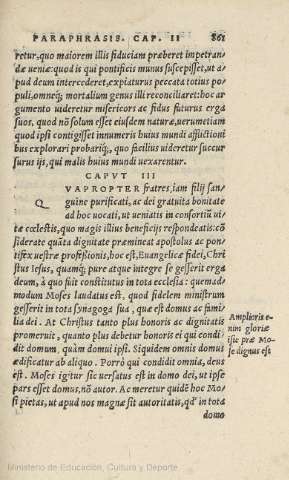 PARAPHRASIS. CAP. II 861
retur, quo maiorem illis fiduciam præberet impetran-
dæ ueniæ: quod is qui pontificis munus suscepisset, ut a-
pud deum intercederet, expiaturus peccata totius po-
puli, omneq́; mortalium genus illi reconciliaret: hoc ar
gumento uideretur misericors ac fidus futurus erga
suos, quod nō solum esset eiusdem naturæ, uerumetiam
quod ipsi contigisset innumeris huius mundi afflictioni
bus explorari probariq́;, quo facilius uideretur succur
surus ijs, qui malis huius mundi uexarentur.
CAPVT III
QVAPROPTER fratres, iam filij san-
guine purificati, ac dei gratuita bonitate
ad hoc uocati, ut ueniatis in consortiū ui-
tæ cœlestis, quo magis illius beneficijs respondeatis: cō
siderate quāta dignitate præmineat apostolus ac pon-
tifex uestræ professionis, hoc est, Euangelicæ fidei, Chri
stus Iesus, quamq́; pure atque integre se gesserit erga
deum, à quo fuit constitutus in tota ecclesia: quemad
modum Moses laudatus est, quod fidelem ministrum
gesserit in tota synagoga sua, quæ est domus ac fami-
lia dei. At Christus tanto plus honoris ac dignitatis
promeruit, quanto plus debetur honoris ei qui condi-
dit domum, quàm domui ipsi. Siquidem omnis domus
ædificatur ab aliquo. Porrò qui condidit omnia, deus
est. Moses igitur sic uersatus est in domo dei, ut ipse
pars esset domus, nō autor. Ac meretur quidē hoc Mo
si pietas, ut apud nos magnæ sit autoritatis, qd' in tota
domo
Amplioris e-
nim gloriæ
iste præ Mo-
se dignus est
Ministerio de Educación, Cultura y Deporte